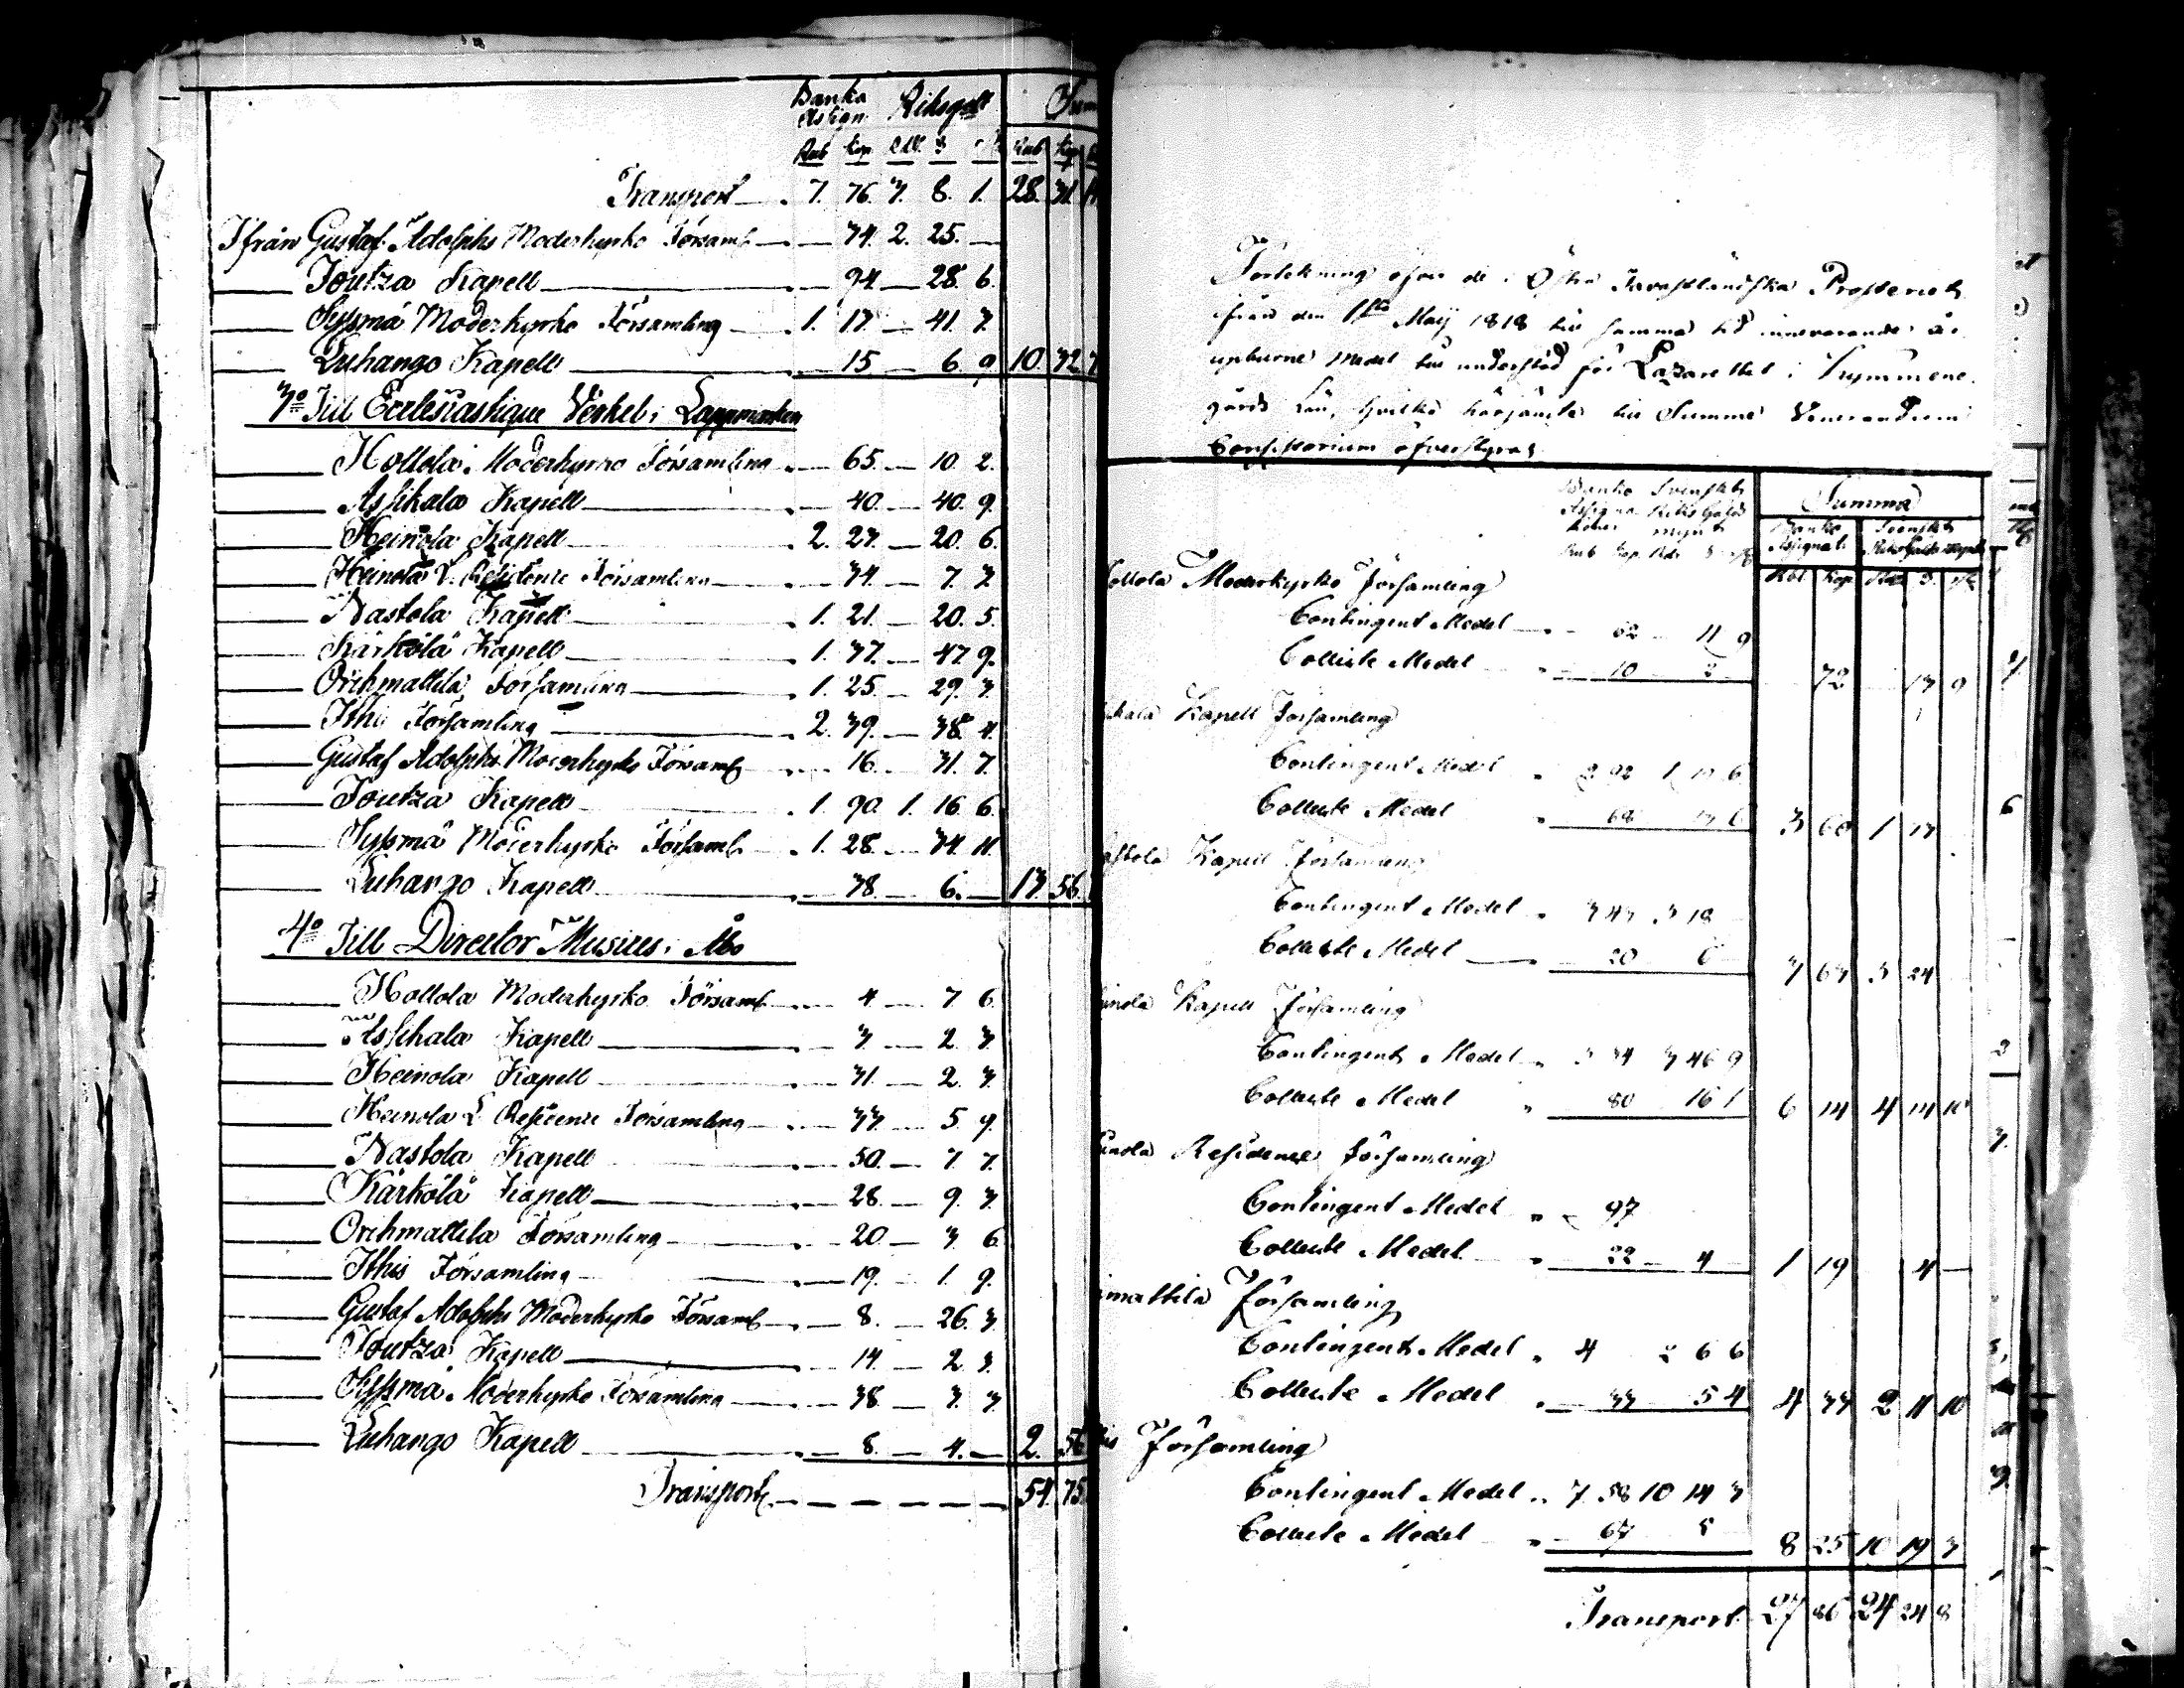 Banko Assign. Riksgell Sum
Rub Kop Rdr ß Rub Kop
Transport 7. 76. 3. 8. 1. 28. 31.
Ifrån Gustaf Adolphs Moderkyrko Församl. — 34. 2. 25. —
Joutza Kapell — 94. — 28. 6.
Syssmä Moderkyrko Församling 1. 13. — 41. 3.
Luhango Kapell — 15. — 6. 9. 10. 32.
3o Till Ecclesiastique Verket i Lappmarken
Hollola Moderkyrko Församling — 65. — 10. 2.
Assikala Kapell — 40. — 40. 9.
Heinola Kapell 2. 23. — 20. 6.
Heinola L. Residence Församling — 34. — 7. 3.
Nastola Kapell 1. 21. — 20. 5.
Kärkölä Kapell 1. 37. — 47. 9.
Orihmattila Församling 1. 25. — 29. 3.
Ithis Församling 2. 39. — 38. 4.
Gustaf Adolphs Moderkyrko Församl. — 16. — 31. 7.
Joutza Kapell 1. 90. 1. 16. 6.
Syssmä Moderkyrko Församl. 1. 28. — 34. 11.
Luhango Kapell — 38. — 6. — 13. 56.
4o Till Director Musices i Åbo
Hollola Moderkyrko Församl. — 4. — 7. 6.
Assikala Kapell — 3. — 2. 3.
Heinola Kapell — 31. — 2. 3.
Heinola L. Residence Församling — 33. — 5. 9.
Nastola Kapell — 50. — 7. 7.
Kärkölä Kapell — 28. — 9. 3.
Orihmattila Församling — 20. — 3. 6.
Ithis Församling — 19. — 1. 9.
Gustaf Adolphs Moderkyrko Församl. — 8. — 26. 3.
Joutza Kapell — 14. — 2. 3.
Syssmä Moderkyrko Församling — 38. — 3. 3.
Luhango Kapell — 8. — 4. — 2. 56
Transport — — — — — 54. 75.
Förtekning öfver de i Östra Tavastländska Prosteriet
ifrån den 1sta Maij 1818 till samma tid innevarande år
upburne Medel till understöd för Lazarettet i Kymmene
gårds Län, hvilka härjämte till Summe Venerandum
Consistorium öfverstyras
Banko Assigna Svenskt Riks Gälds mynt Summa
Banko Assignat. Svenskt Riks Gälds mynt
Rub Kop Rdr Rbl Kop
ollola Moderkyrko Församling
Contingent Medel — 62 — 11 9
Collecte Medel — 10 2 — 72 13 9
ikala Kapell Församling
Contingent Medel 2 92 1
Collecte Medel 68 6 3 60 1 13
astola Kapell Församling
Contingent Medel 3 43 3 18
Collecte Medel — 20 6 3 63 3 24
inola Kapell Församling
Contingent Medel 34 3 46 9
Collecte Medel 80 16 1 6 14 4 14 10
inola Residence Församling
Contingent Medel 97
Collecte Medel — 22 — 4 1 19 4 —
imattila Församling
Contingent Medel 4 2 6 6
Collecte Medel — 33 5 4 4 33 2 11 10
Församling
Contingent Medel 7 58 10 14 3
Collecte Medel — 67 5 8 25 10 19 3
Transport 27 86 24 24 8